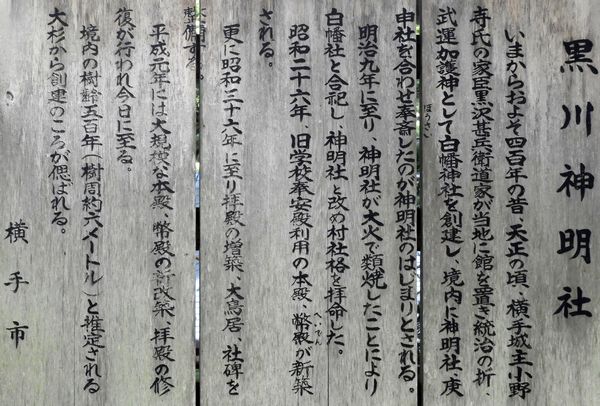 黒川神明社
いまからおよそ四百年の昔、天正の頃、横手城主小野
寺氏の家臣黒沢甚兵衛道家が当地に館を置き統治の折、
武運加護神として白幡神社を創建し、境内に神明社、庚
申社を合わせ奉斎したのが神明社のはじまりとされる。
ほうさい
明治九年に至り、神明社が大火で類焼したことにより
白幡社と合祀し、神明社と改め村社格を拝命した。
昭和二十六年、旧学校奉安殿利用の本殿、幣殿が新築
へいでん
される。
更に昭和三十八年に至り拝殿の増築、大鳥居、社碑を
整備する。
平成元年には大規模な本殿、幣殿の新改築、拝殿の修
復が行われ今日に至る。
境内の樹齢五百年(樹周約六メートル)と推定される
大杉から創建のころが偲ばれる。
横手市